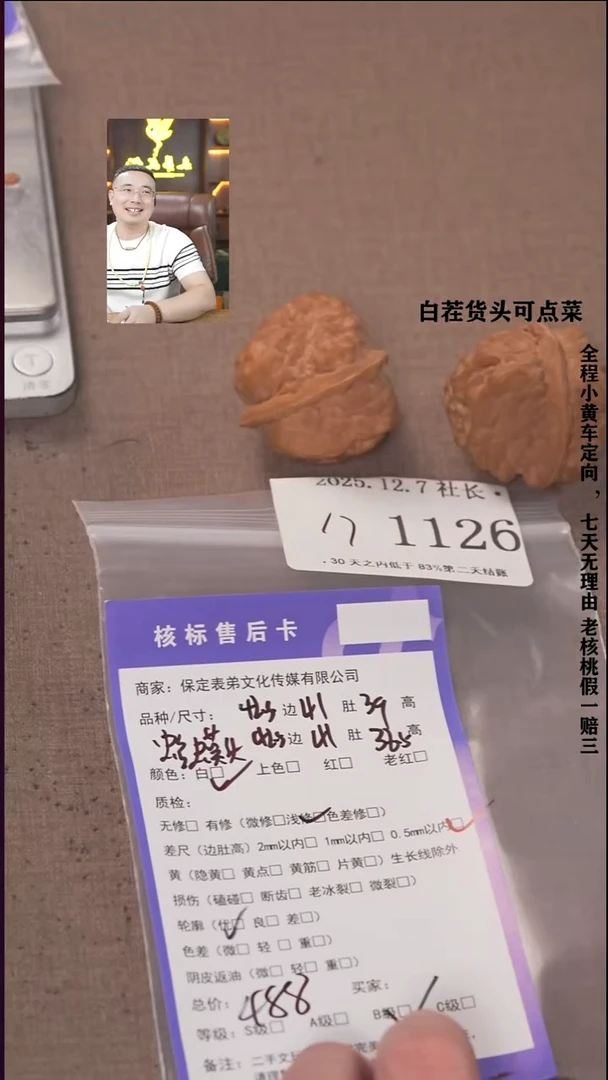 白茬货头可点菜
全程小黄车定向，七天无理由 老核桃假一赔三
2025.12.7 社长·
17 1126
.30 天之内低于 83%第二天结账
核标售后卡
商家：保定表弟文化传媒有限公司
品种/尺寸： 边 41 肚 39 高
边 41 肚 36.5 高
颜色：白□ 上色□ 红□ 老红□
质检：
无修□ 有修（微修□浅修□色差修□）
差尺（边肚高）2mm以内□ 1mm以内□ 0.5mm以内□
黄（隐黄□ 黄点□ 黄筋□ 片黄□）生长线除外
损伤（磕碰□ 断齿□ 老冰裂□ 微裂□）
轮廓（优□ 良□ 差□）
色差（微□ 轻 □ 重□）
阴皮返油（微□ 轻□ 重□）
总价：488 买家：
等级：S级□ A级□ B级□ C级□
备注：二手文
清理